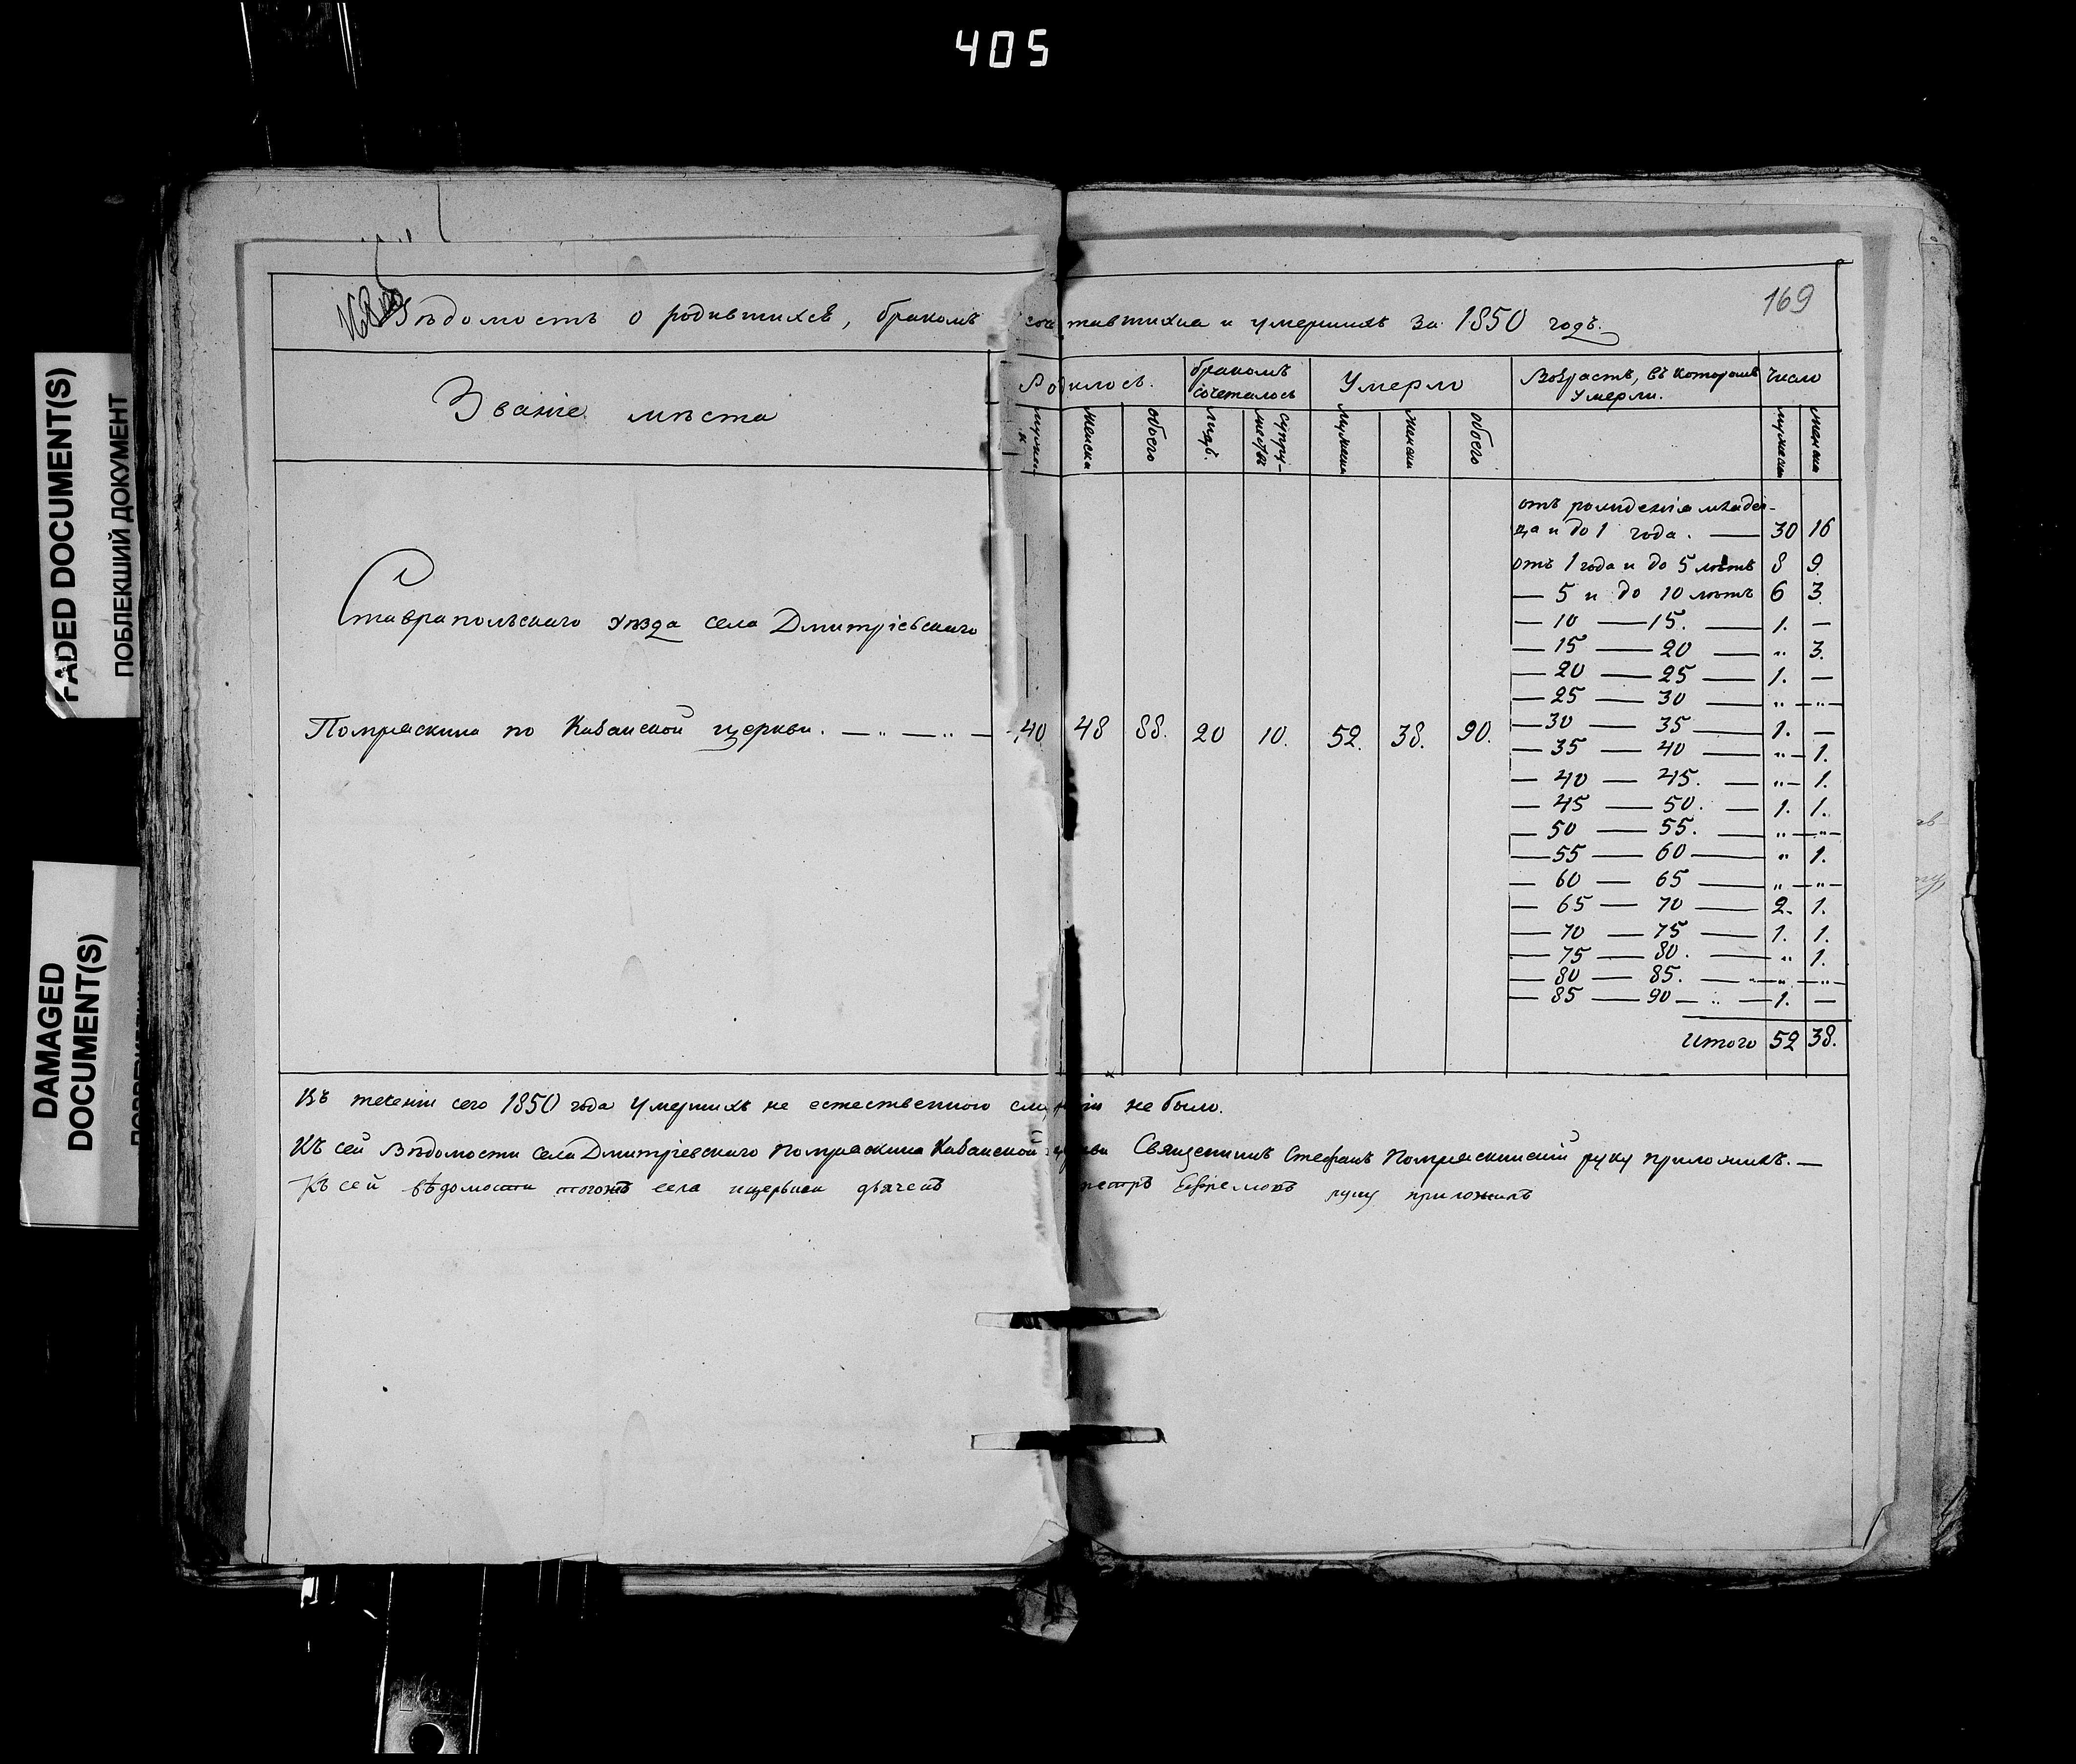 405
FADED DOCUMENT(S)
ПОБЛЕКШИЙ ДОКУМЕНТ
DAMAGED
DOCUMENT(S)
169
Вѣдомость о родившихся, бракомъ сочетавшихся и умершихъ за 1850 годъ.
Званіе мѣста
Родилось.
бракомъ сочеталось
Умерло
Возрастъ, въ которомъ Умерли.
Число
женска
обоего
супружествъ
женска
обоего
отъ рожденія младен-
ца и до 1 года. — 30 16
отъ 1 года и до 5 лѣтъ 8 9
— 5 и до 10 лѣтъ 6 3.
— 10 — 15. — 1. —
— 15 — 20 — " 3.
— 20 — 25 — 1. —
— 25 — 30 — " — " —
— 30 — 35 — 1. —
— 35 — 40 — " — 1.
— 40 — 45. — " — 1.
— 45 — 50. — 1. 1.
— 50 — 55. — " — " —
— 55 — 60 — " 1.
— 60 — 65 — " — " —
— 65 — 70 — 2. 1.
— 70 — 75 — 1. 1.
— 75 — 80. — " 1.
— 80 — 85. — " — " —
— 85 — 90 — " — 1. —
Итого 52 38.
Ставропольскаго уѣзда села Дмитріевскаго
Помряскина по Казанской церкви. — " — " — 40 48 88. 20 10. 52. 38. 90.
Въ теченіи сего 1850 года Умершихъ не естественною смертію не было.
Къ сей Вѣдомости села Дмитріевскаго Помряскина Казанской церкви Священникъ Стефанъ Помряскинскій руку приложилъ. —
Къ сей вѣдомости тогожъ села церьвки дьячекъ петръ Ефремовъ руку приложилъ